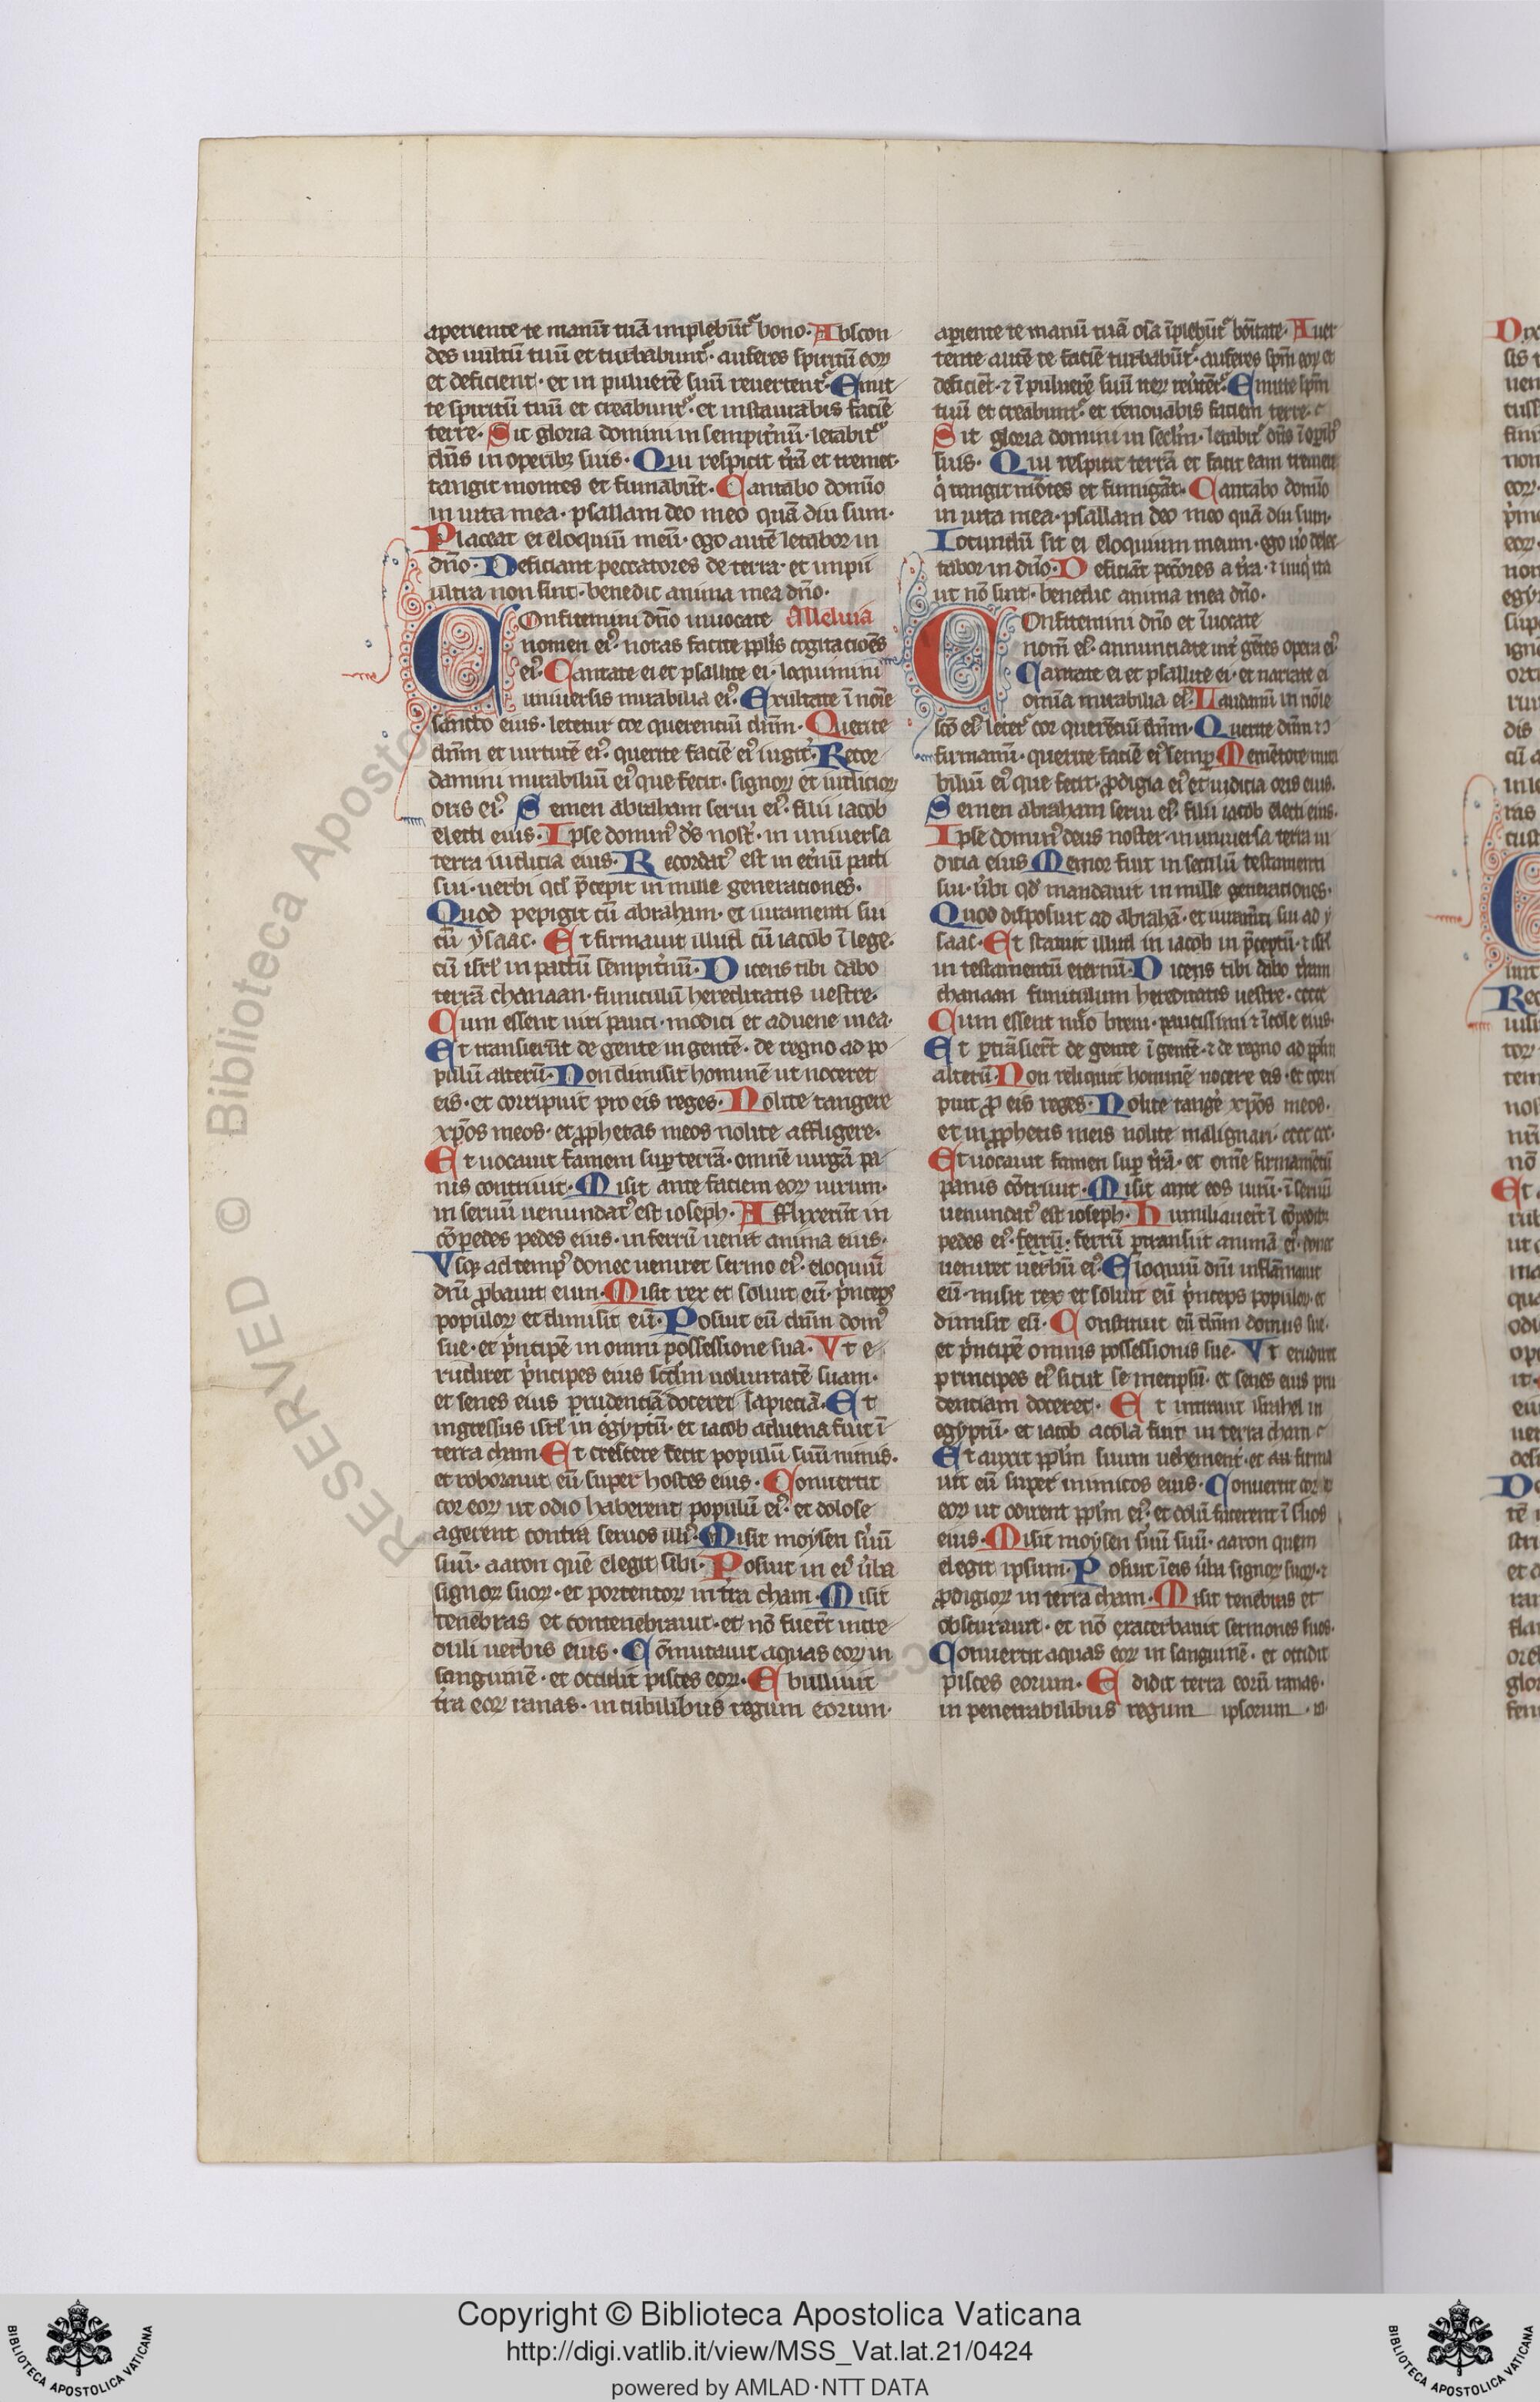 aperiente te manū tuā implebūt᷑ bono· Abscon
des uultū tuū et turbabunt᷑· auferes spiritū eoꝝ
et deficient· et in puluerē suū reuertent᷑· Emit
te spiritū tuū et creabunt᷑· et instaurabis faciē
terre· Sit gloria domini in sempit̉nū· letabit᷑
dn̄s in operibꝫ suis· Qui respicit t̉rā et tremet·
tangit montes et fumabūt· Cantabo domīo
in uita mea· psallam deo meo quā diu sum·
Placeat ei eloquiū meū· ego autē letabor in
dn̄o· Deficiant peccatores de terra· et impii
ultra non sint· benedic anima mea dn̄o·
Confitemini dn̄o inuocate Alleluia
nomen eiꝰ· notas facite pp̄lis cogitacioēs
eiꝰ· Cantate ei et psallite ei· loquimini
uniuersis mirabilia eiꝰ· Exultate ī noīe
sancto eius· letetur cor querentiū dn̄m· Querite
dn̄m et uirtutē eiꝰ· querite faciē eiꝰ iugit̉· Recor
damini mirabiliū eiꝰ que fecit· signoꝝ et iudicioꝝ
oris eiꝰ· Semen abraham serui eiꝰ· filii iacob
electi eius· Ipse dominꝰ ds̄ nost̉· in uniuersa
terra iudicia eius· Recordatꝰ est in et̉nū pacti
sui· uerbi qd̄ p̄cepit in mille generationes·
Quod pepigit cū abraham· et iuramenti sui
cū ysaac· Et firmauit illud cū iacob ī lege·
cū isrl̄ in pactū sempit̉nū· Dicens tibi dabo
terrā chanaan· funiculū hereditatis uestre·
Cum essent uiri pauci· modici et aduene in ea·
Et transierūt de gente in gentē· de regno ad po
pulū alterū· Non dimisit hominē ut noceret
eis· et corripuit pro eis reges· Nolite tangere
xp̄os meos· et ꝓphetas meos nolite affligere·
Et uocauit famem suꝑ terrā· omnē uirgā pa
nis contriuit· Misit ante faciem eoꝝ uirum·
in seruū uenundatꝰ est ioseph· Afflixerūt in
cōpedes pedes eius· in ferrū uenit anima eius·
Vsqꝫ ad tempꝰ donec ueniret sermo eiꝰ· eloquiū
dn̄i ꝓbauit eum· Misit rex et soluit eū· p̉nceps
populoꝝ et dimisit eū· Posuit eū dn̄m domꝰ
sue· et p̉ncipē in omni possessione sua· Vt e
rudiret p̉ncipes eius scd̄m uoluntatē suam·
et senes eius prudentiā doceret sapiēciā· Et
ingressus isrl̄ in egyptū· et iacob aduena fuit ī
terra cham· Et crescere fecit populū suū nimis·
et roborauit eū super hostes eius· Conuertit
cor eoꝝ ut odio haberent populū eiꝰ· et dolose
agerent contra seruos illiꝰ· Misit moysen s̉uū
suū· aaron quē elegit sibi· Posuit in eiꝰ ủba
signoꝝ suoꝝ· et portentoꝝ in t̉ra cham· Misit
tenebras et contenebrauit· et nō fuert̄ incre
duli uerbis eius· Cōmutauit aquas eoꝝ in
sanguinē· et occidit pisces eoꝝ· Ebulliuit
t̉ra eoꝝ ranas· in cubilibus regum eorum·
aperiente te manū tuā oīa īplebūt᷑ bōitate· Auer
tente autē te faciē turbabūt᷑· auferes sp̄m eoꝝ et
deficiēt· ⁊ ī puluerē suū reủtēt᷑· Emitte sp̄m
tuū et creabunt᷑· et renouabis faciem terre·
Sit gloria domini in secl̄m· letabit᷑ dn̄s ī oꝑibꝰ
suis· Qui respicit terrā et facit eam tremere
q̉ tangit mōtes et fumigāt· Cantabo domīo
in uita mea· psallam deo meo quā diu sum·
Iocundū sit ei eloquium meum· ego ủo delec
tabor in dn̄o· Deficiāt pctōres a t̉ra· ⁊ iniq̉ ita
ut nō sint· benedic anima mea dn̄o·
Confitemini dn̄o et īuocate
nom̄ eiꝰ· annunciate int̉ gētes opera eiꝰ·
Cantate ei et psallite ei· et narrate ei
omīa mirabilia eiꝰ· Laudamī in noīe
scō eiꝰ letet᷑ cor querētiū dn̄m· Querite dn̄m ⁊
firmamī· querite faciē eiꝰ semꝑ Memētote mira
biliū eiꝰ que fecit· ꝓdigia eiꝰ et iudicia oris eius·
Semen abraham serui eiꝰ· filii iacob electi eius·
Ipse dominꝰ deus noster· in uniuersa terra iu
dicia eius Memor fuit in seculū testamenti
sui· ủbi qd̄ mandauit in mille generationes·
Quod disposuit ad abrahā· et iuramēti sui ad y
saac· Et statuit illud in iacob in p̄ceptū· ⁊ isrl̄
in testamentū eternū· Dicens tibi dabo terram
chanaan funiculum hereditatis uestre·
Cum essent nūo breui· paucissimi ⁊ īcole eius·
Et ꝑtrāsiert̄ de gente ī gentē· ⁊ de regno ad pp̄lm
alterū· Non reliquit hominē nocere eis· et corri
puit ꝓ eis reges· Nolite tange xp̄os meos·
et in ꝓphetis meis nolite malignari·
Et uocauit famen suꝑ t̉rā· et omē firmamētū
panis cōtriuit· Misit ante eos uirū· ī seruū
uenundatꝰ est ioseph· Humiliauert̄ ī cōpedibꝫ
pedes eiꝰ· ferrū· ferrū ꝑtransiit animā eiꝰ· donec
ueniret uerbū eiꝰ· Eloquiū dn̄i inflāmauit
eū· misit rex et soluit eū p̉nceps populoꝝ· et
dimisit eū· Constituit eū dn̄m domus sue·
et p̉ncipē omnis possessionis sue· Vt erudiret
principes eiꝰ sicut se metipsū· et senes eius pru
dentiam doceret· Et intrauit israhel in
egyptū· et iacob acola fuit in terra cham
Et auxit pp̄lm suum uehement̉· et firma
uit eū super inimicos eius· Conuertit cor
eoꝝ ut odirent pp̄lm eiꝰ· et dolū facerent ī s̉uos
eius· Misit moysen s̉uū suū· aaron quem
elegit ipsum· Posuit ī eis ủba signoꝝ suoꝝ· ⁊
ꝓdigioꝝ in terra cham· Misit tenebras et
obscurauit· et nō exacerbauit sermones suos·
Conuertit aquas eoꝝ in sanguinē· et occidit
pisces eorum· Edidit terra eorū ranas·
in penetrabilibus regum ipsorum
RESERVED © Biblioteca Aposto
Copyright © Biblioteca Apostolica Vaticana
http://digi.vatlib.it/view/MSS_Vat.lat.21/0424
powered by AMLAD·NTT DATA
BIBLIOTECA APOSTOLICA VATICANA
BIBLIOTECA APOSTOLICA VATICANA